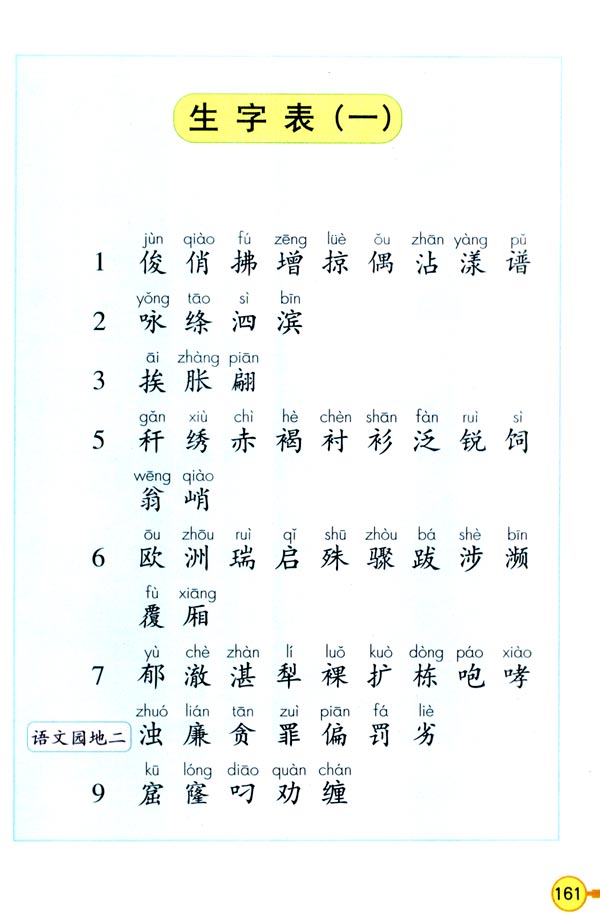 生字表（一）
jùn qiào fú zēng lüè ǒu zhān yàng pǔ
1 俊 俏 拂 增 掠 偶 沾 漾 谱
yǒng tāo sì bīn
2 咏 绦 泗 滨
āi zhàng piān
3 挨 胀 翩
gǎn xiù chì hè chèn shān fàn ruì sì
5 秆 绣 赤 褐 衬 衫 泛 锐 饲
wēng qiào
翁 峭
ōu zhōu ruì qǐ shū zhòu bá shè bīn
6 欧 洲 瑞 启 殊 骤 跋 涉 濒
fù xiāng
覆 厢
yù chè zhàn lí luǒ kuò dòng páo xiào
7 郁 澈 湛 犁 裸 扩 栋 咆 哮
zhuó lián tān zuì piān fá liè
语文园地二 浊 廉 贪 罪 偏 罚 劣
kū lóng diāo quàn chán
9 窟 窿 叼 劝 缠
161